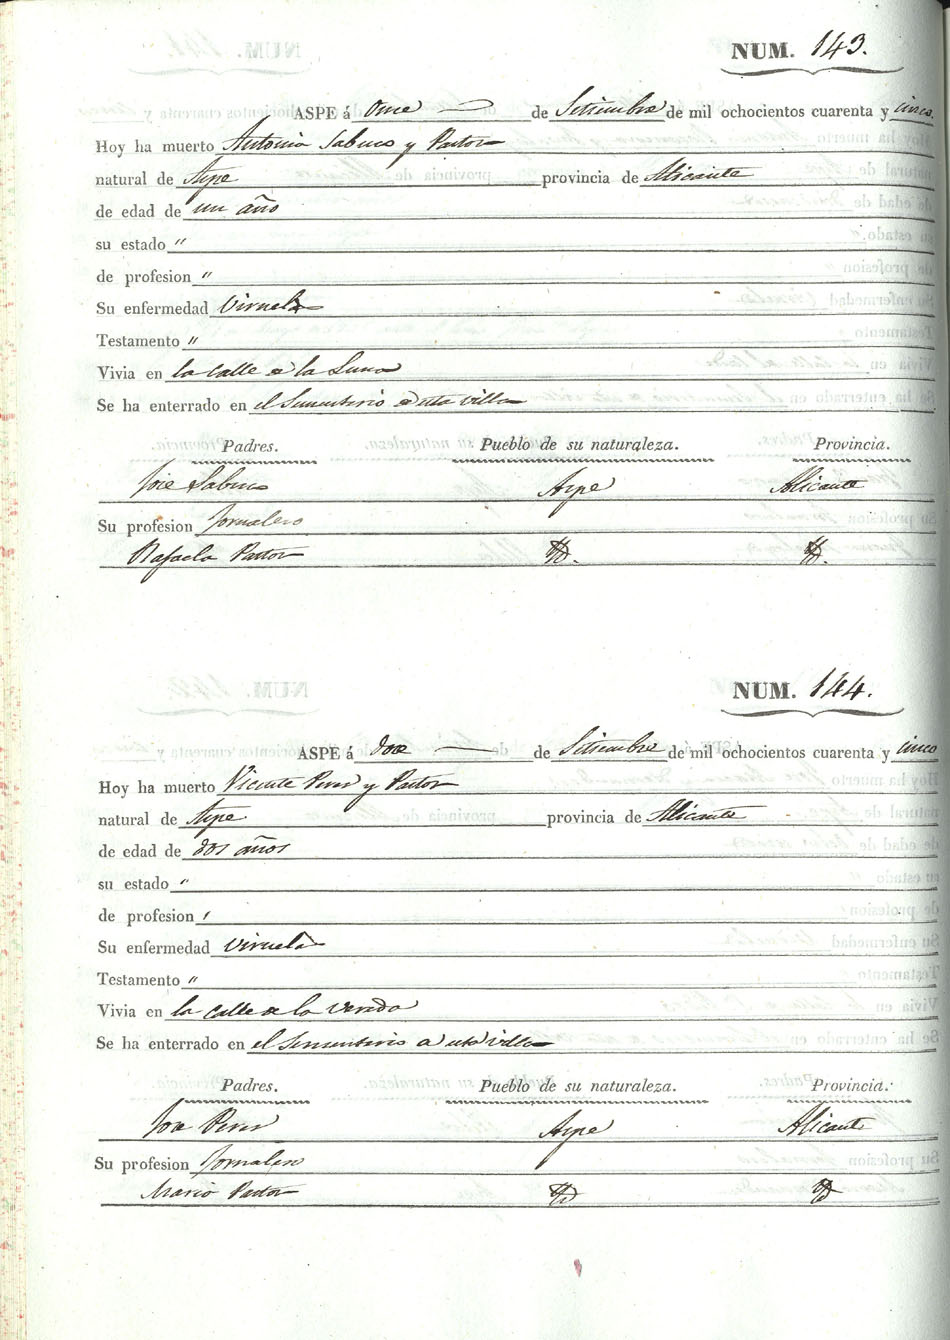 NUM. 143.
ASPE á Onse de Setiembre de mil ochocientos cuarenta y cinco.
Hoy ha muerto Antonia Sabuco y Pastor
natural de Aspe provincia de Alicante
de edad de un año
su estado "
de profesion "
Su enfermedad Viruela
Testamento "
Vivia en la calle de la Luna
Se ha enterrado en el Sementerio de esta villa
Padres. Pueblo de su naturaleza. Provincia.
Jose Sabuco Aspe Alicante
Su profesion Jornalero
Rafaela Pastor Yd. Yd.
NUM. 144.
ASPE á doce de Setiembre de mil ochocientos cuarenta y cinco
Hoy ha muerto Vicente Perez y Pastor
natural de Aspe provincia de Alicante
de edad de dos años
su estado "
de profesion "
Su enfermedad Viruela
Testamento "
Vivia en la calle de la
Se ha enterrado en el Sementerio de esta villa
Padres. Pueblo de su naturaleza. Provincia.
Jose Perez Aspe Alicante
Su profesion Jornalero
Maria Pastor Yd Yd